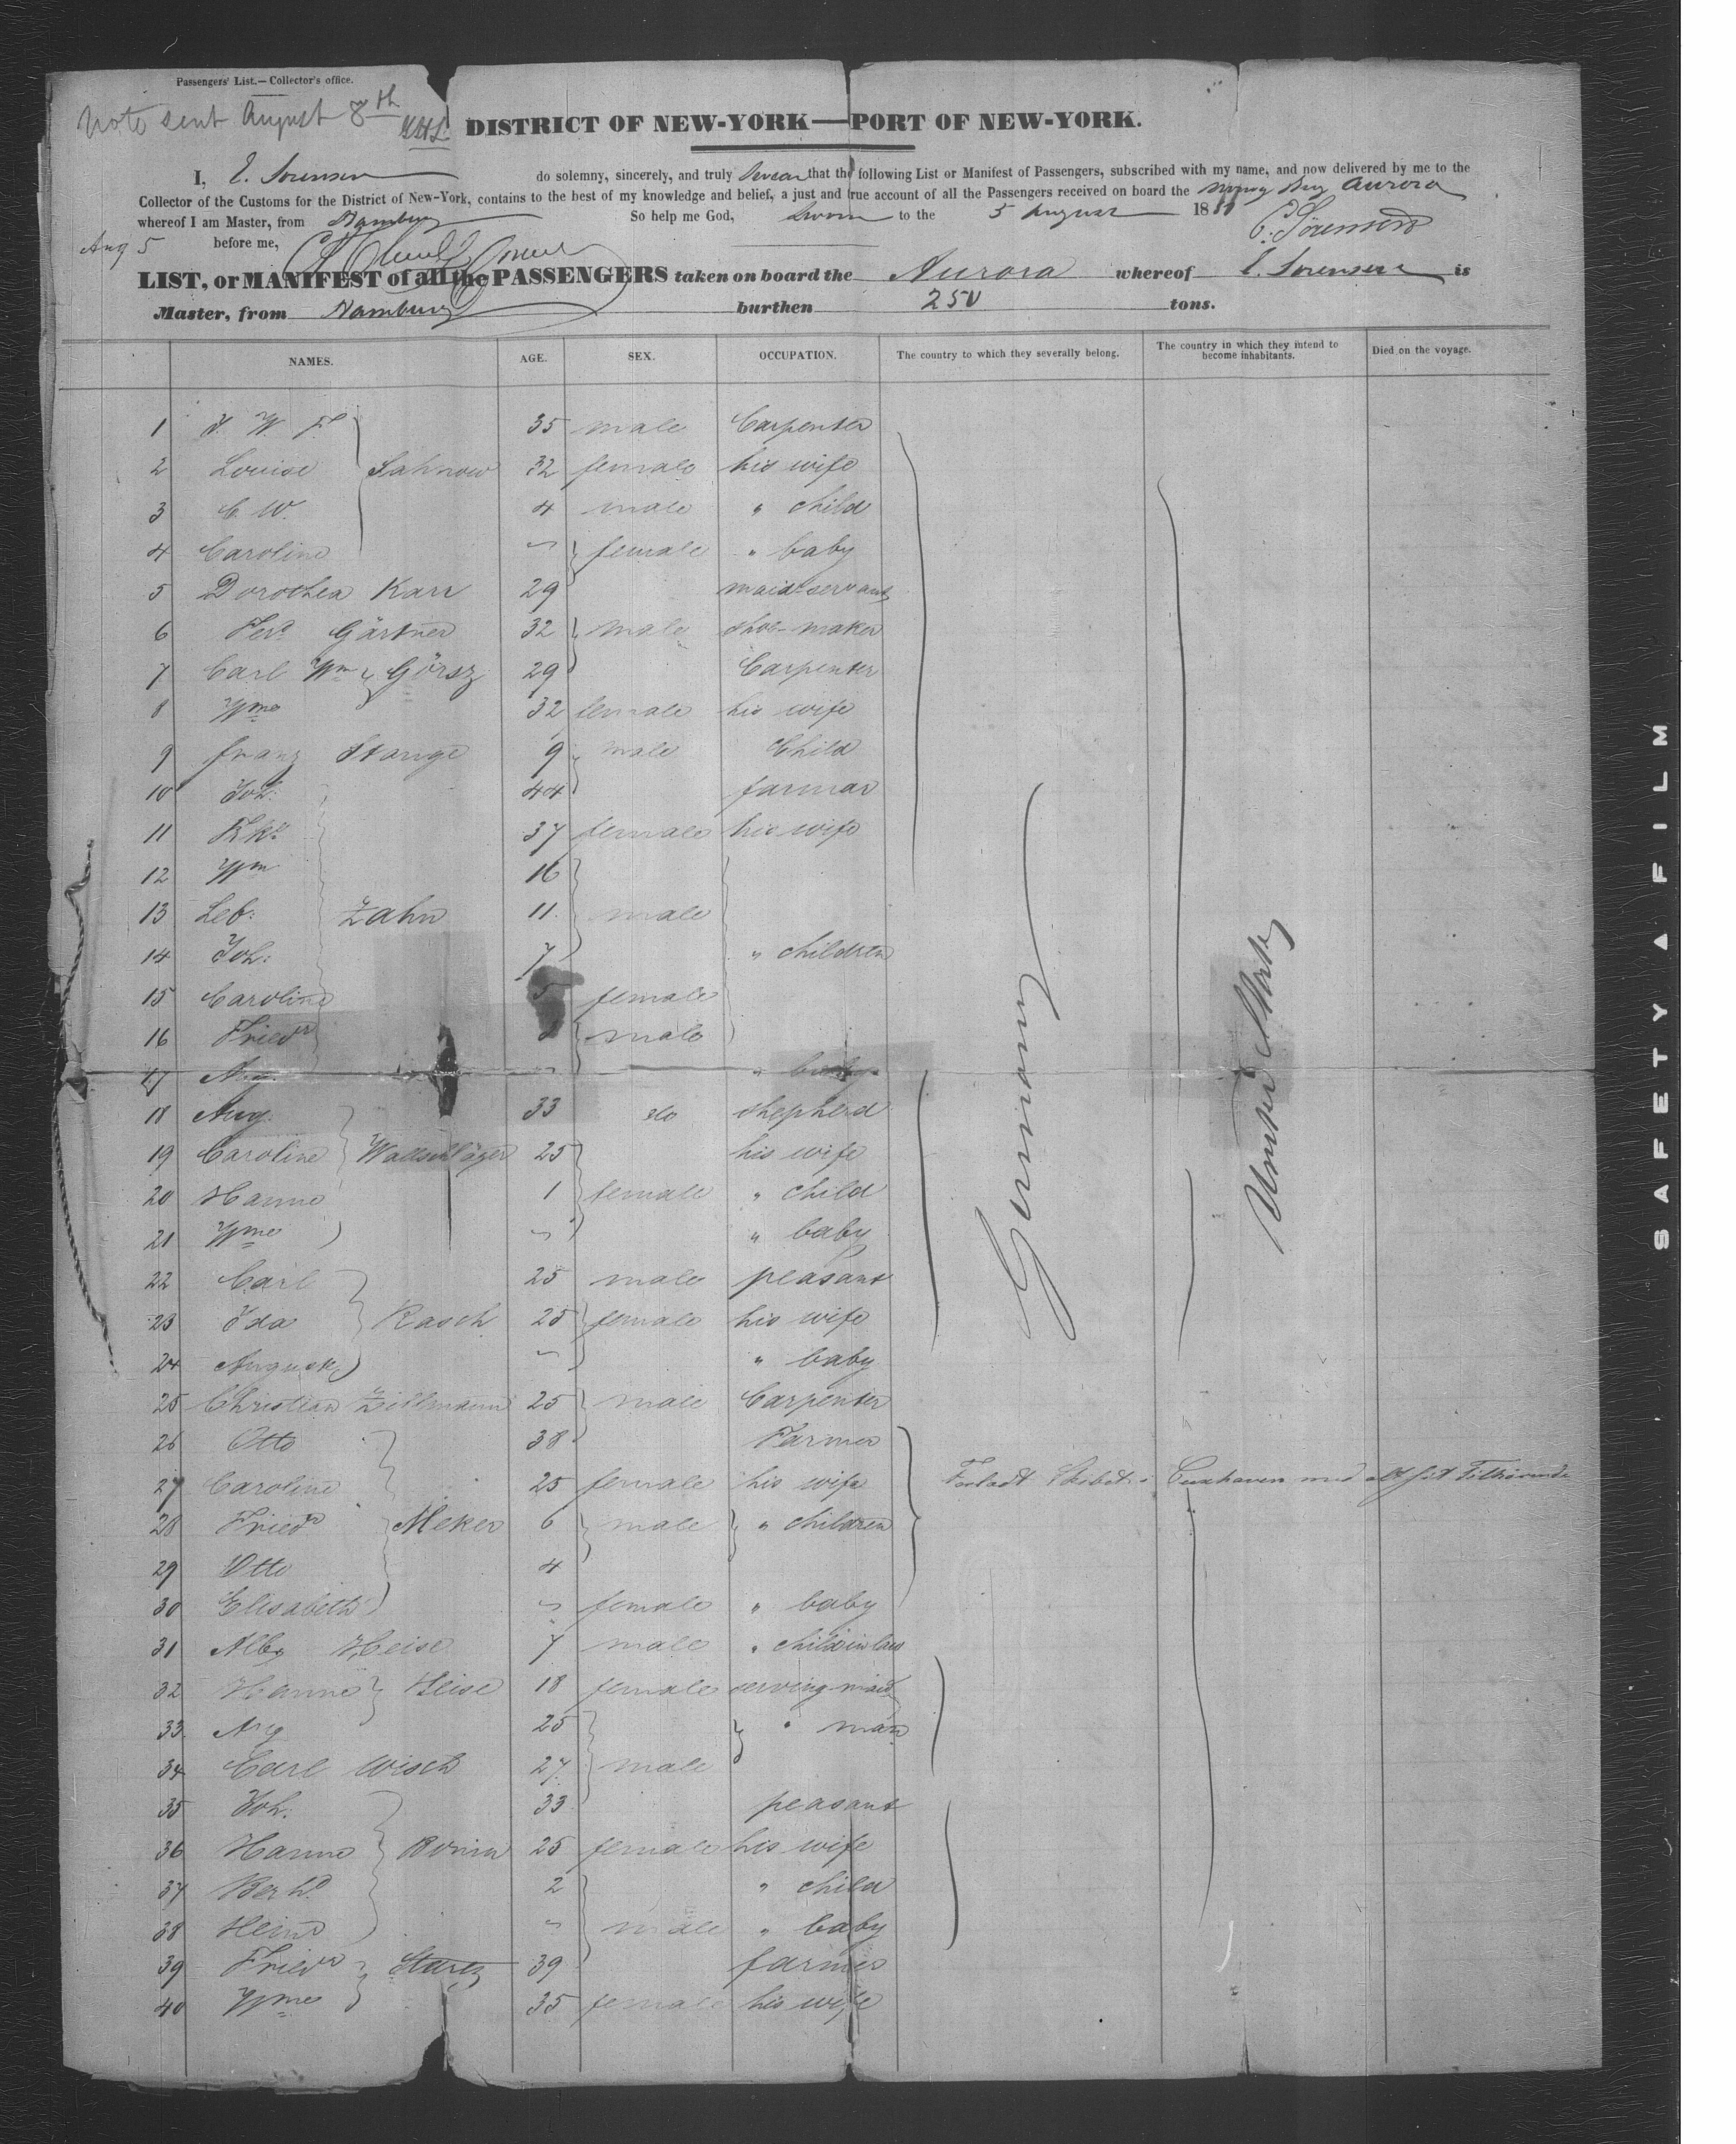 Passengers' List.—Collector's office.
Note sent August 8th
DISTRICT OF NEW-YORK—PORT OF NEW-YORK.
I, E. Sorensen do solemny, sincerely, and truly Swear that the following List or Manifest of Passengers, subscribed with my name, and now delivered by me to the
Collector of the Customs for the District of New-York, contains to the best of my knowledge and belief, a just and true account of all the Passengers received on board the Brig Aurora
whereof I am Master, from Hamburg So help me God, Sworn to the 5 August 18
E. Sörensen
Aug 5 before me,
LIST, or MANIFEST of all the PASSENGERS taken on board the Aurora whereof E. Sorensen is
Master, from Hamburg burthen 250 tons.
NAMES. AGE. SEX. OCCUPATION. The country to which they severally belong. The country in which they intend to become inhabitants. Died on the voyage.
1 F. W. F. 35 male Carpenter
2 Louise Sahnow 32 female his wife
3 C W. 4 male " child
4 Caroline female " baby
5 Dorothea Karr 29 maid-servant
6 Ferd Gärtner 32 male shoe-maker
7 Carl Wm Görsz 29 Carpenter
8 Wme 32 female his wife
9 franz Stange 9 male Child
10 Joh: 44 farmar
11 37 female his wife
12 Wm 16
13 Leb: Zahn 11 male
14 Joh: 7 " children
15 Caroline 5 female
16 Friedr male
17 Aug. " baby
18 Aug. 33 do shepherd
19 Caroline Wallschläger 25 his wife
20 Hanne 1 female " child
21 Wme " baby
22 Carl 25 male peasant
23 Ida Rasch 25 female his wife
24 August " baby
25 Christian Zillmann 25 male Carpenter
26 Otto 38 Farmer
27 Caroline 25 female his wife Forladt Skibet i Cuxhaven med alt sit Tilhörende
28 Friedr Meker 6 male " children
29 Otto 4
30 Elisabeth female " baby
31 Alb. Heise 7 male " child in law
32 Hanne Heise 18 female serving maid
33. Aug 25 " man
34 Carl Wisch 27 male
35 Joh. 33 peasant
36 Hanne 25 female his wife
37 Berhd 2 " child
38 Heinr male " baby
39 Friedr Startz 39 farmer
40 Wme 35 female his wife
Germany
United States
SAFETY A FILM